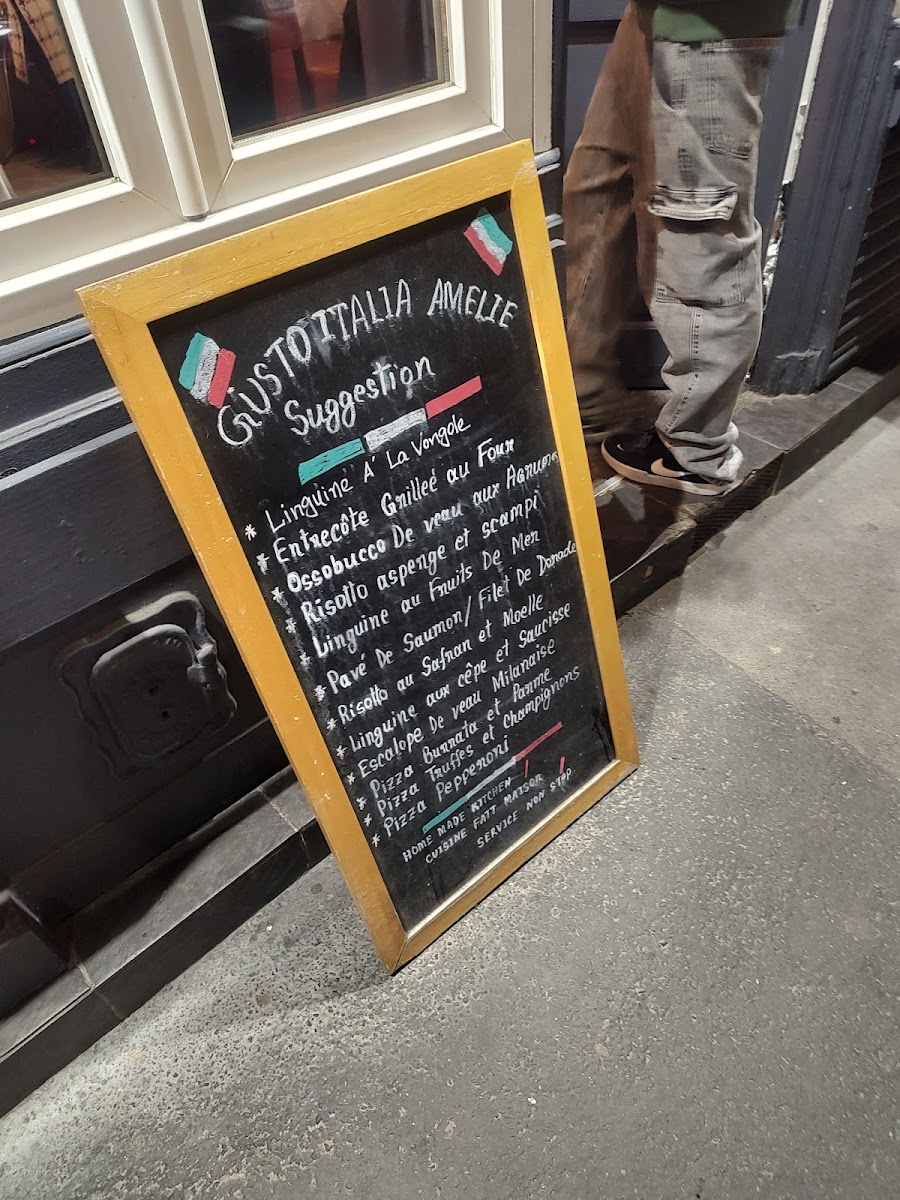 GUSTO ITALIA AMELIE
Suggestion
* Linguine A La Vongole
* Entrecôte Grilleé au Four
* Ossobucco De veau aux Agrumes
* Risotto aspenge et scampi
* Linguine au Fruits De Mer
* Pavé De Saumon/ Filet De Dorade
* Risotto au Safran et Moelle
* Linguine aux cêpe et Saucisse
* Escalope De veau Milanaise
* Pizza Burrata et Parme
* Pizza Truffes et champignons
* Pizza Pepperoni
HOME MADE KITCHEN !
CUISINE FAIT MAISON !
SERVICE NON STOP